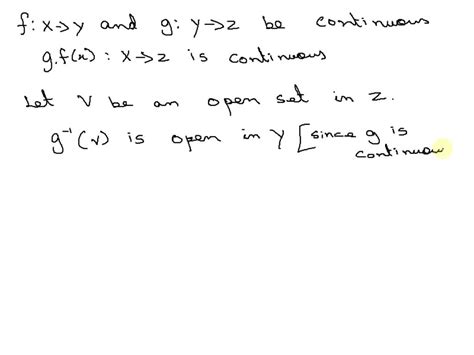 f: x→y and g: y→z be continuous
g.f(x): x→z is continuous
Let V be an open set in z.
g⁻¹(v) is open in y [since g is
continuou